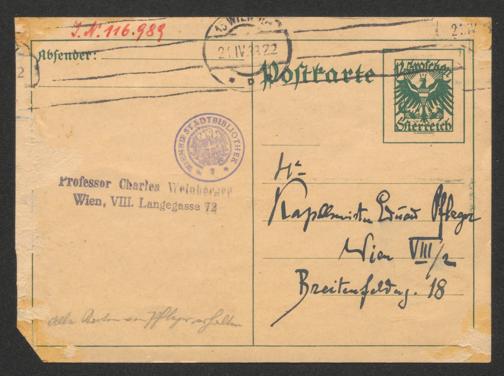 J.N. 116.989
Absender:
WIEN
21.IV.
22
Postkarte
Österreich
WIENER STADTBIBLIOTHEK
Professor Charles Weinberger
Wien, VIII. Langegasse 72
Hr
Kapellmeister Eduard Pfleger
Wien VIII/2
Breitenfelderg. 18
alle Karten von Pfleger erhalten